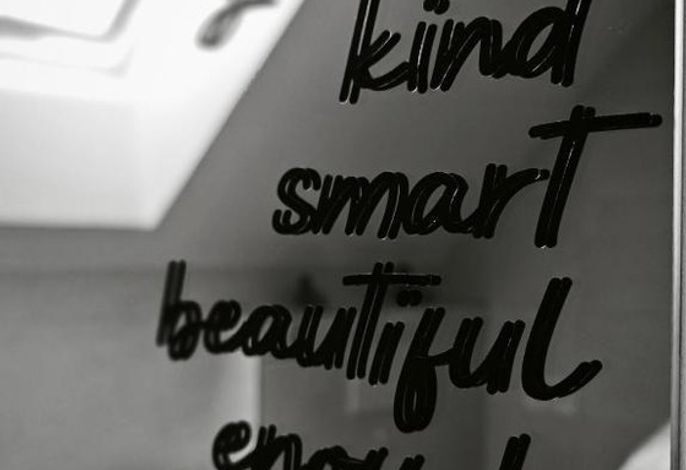 kind
smart
beautiful